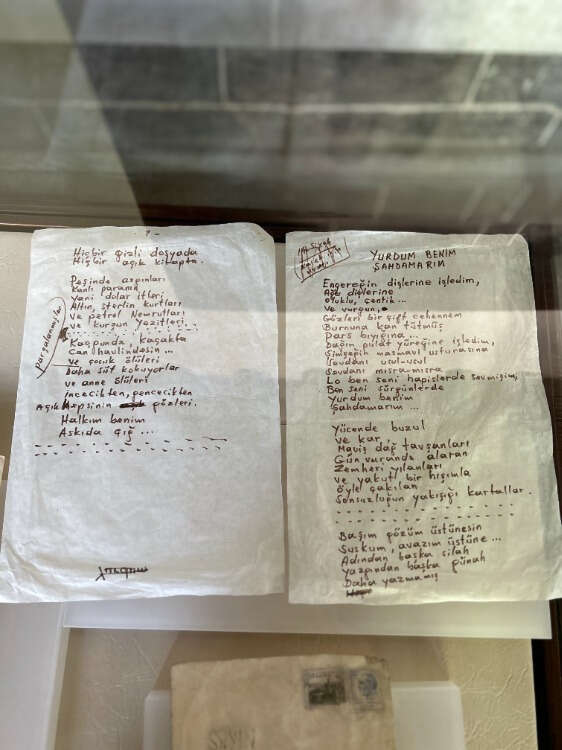 Hiçbir gizli dosyada
Hiçbir açık kitapta.
Peşinde
Kanlı paranın
Yani dolar itleri
Altın, sterlin kurtları
ve petrol Nemrutları
ve kurşun Yezitleri...
parçalanmışlar
Kaçgunda, kaçakta
Can havlindesin...
ve çocuk ölüleri
Daha süt kokuyorlar
ve anne ölüleri
incecikten, pencecikten
Açık hepsinin gözleri.
Halkım benim
Askıda çığ ...
YURDUM BENİM
ŞAHDAMARIM
Engereğin dişlerine işledim,
Ağu dişlerine
Oluklu, çentik ...
Ve vurgun,
Gözleri bir çift cehennem
Burnuna kan tütmüş
Pars bıyığına ...
Dağın pulat yüreğine işledim,
Şimşeğin masmavi usturasına
Sevdanı usul-usul
Sevdanı mısra-mısra
Lo ben seni hapislerde sevmişim,
Ben seni sürgünlerde
Yurdum benim
Şahdamarım ...
Yücende buzul
ve kar,
Maviş dağ tavşanları
Gün vuranda alaran
Zemheri yılanları
ve yakut bir hışımla
öyle çakılan
Sonsuzluğun yakışığı kartallar.
Başım gözüm üstünesin
Suskum, avazım üstüne ...
Adından başka silah
Yazgından başka günah
Daha yazmamış